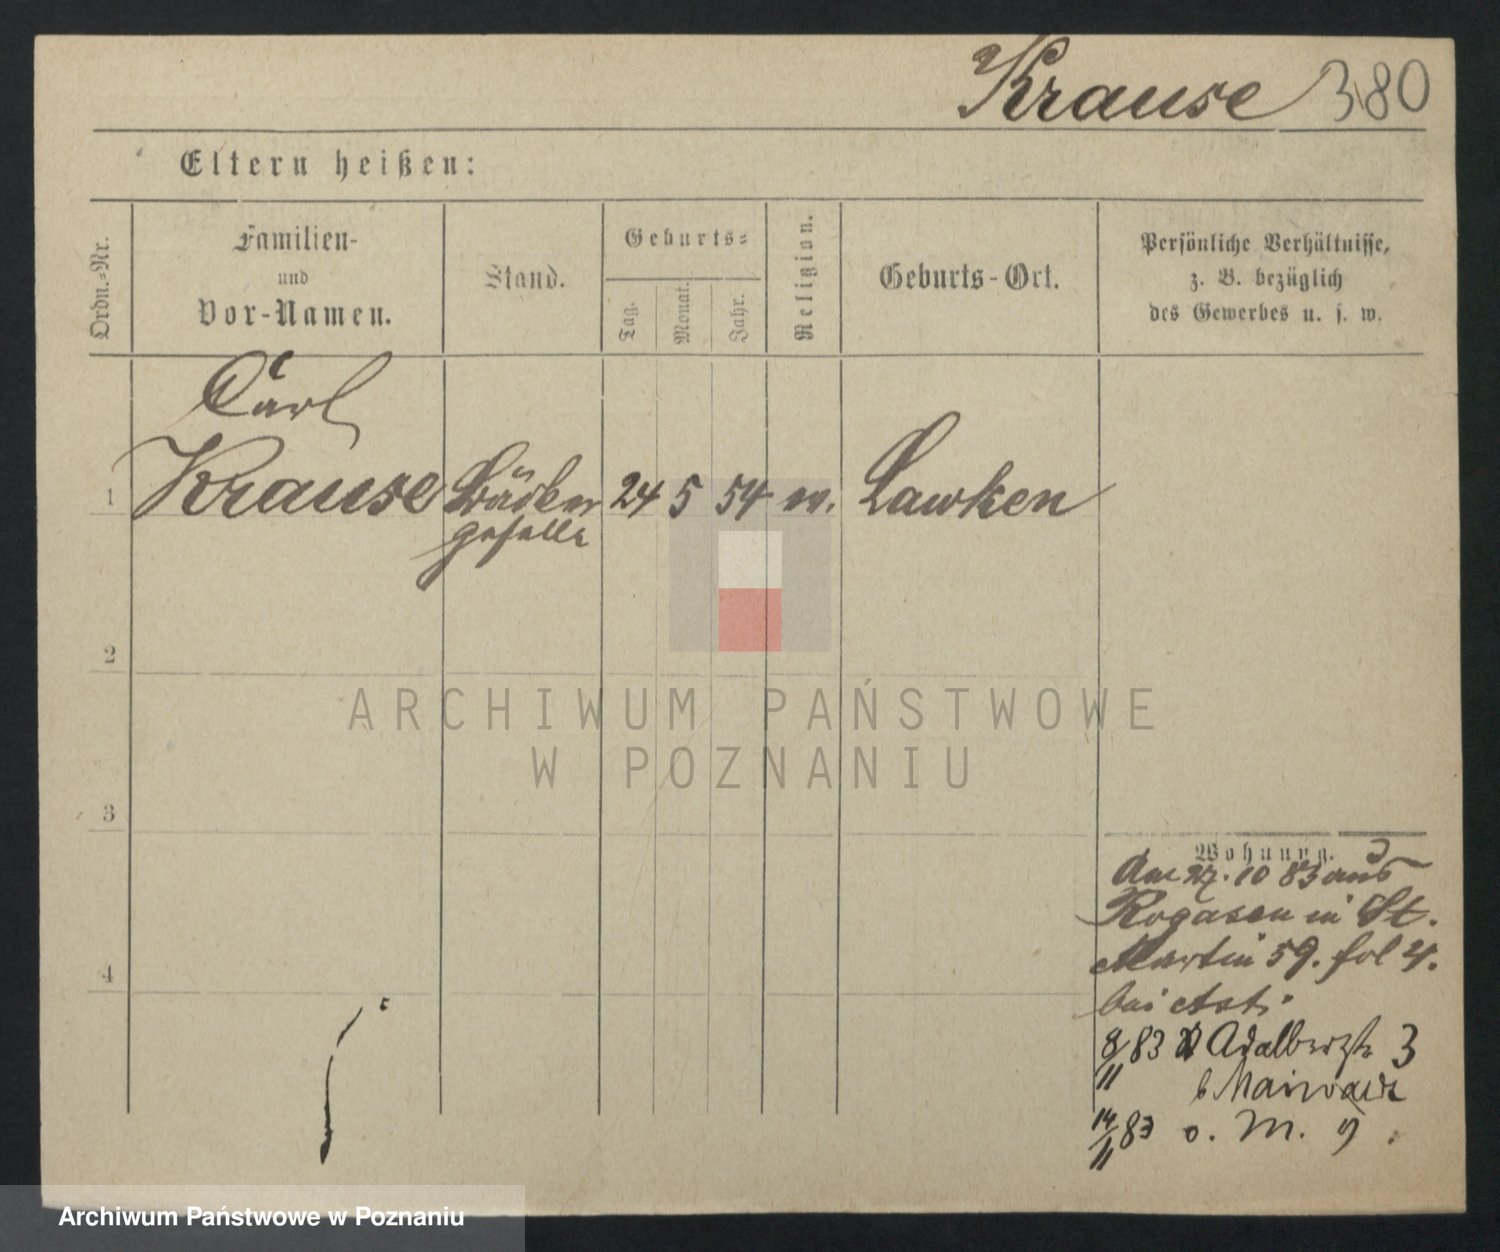 Krause 380
Eltern heißen:
Ordn.-Nr.
Familien-
und
Vor-Namen.
Stand.
Geburts-
Tag.
Monat.
Jahr.
Religion.
Geburts-Ort.
Persönliche Verhältnisse,
z. B. bezüglich
des Gewerbes u. s. w.
Carl
1 Krause 24 5 54 Lawken
geselle
2
ARCHIWUM PAŃSTWOWE
W POZNANIU
3
Wohnung.
27. 10 83 aus
Rogasen in St.
Martin 59. fol 4.
bei
4
8/11 83 Adalbertstr 3
b Maiwald
14/11 83 o. M.
Archiwum Państwowe w Poznaniu